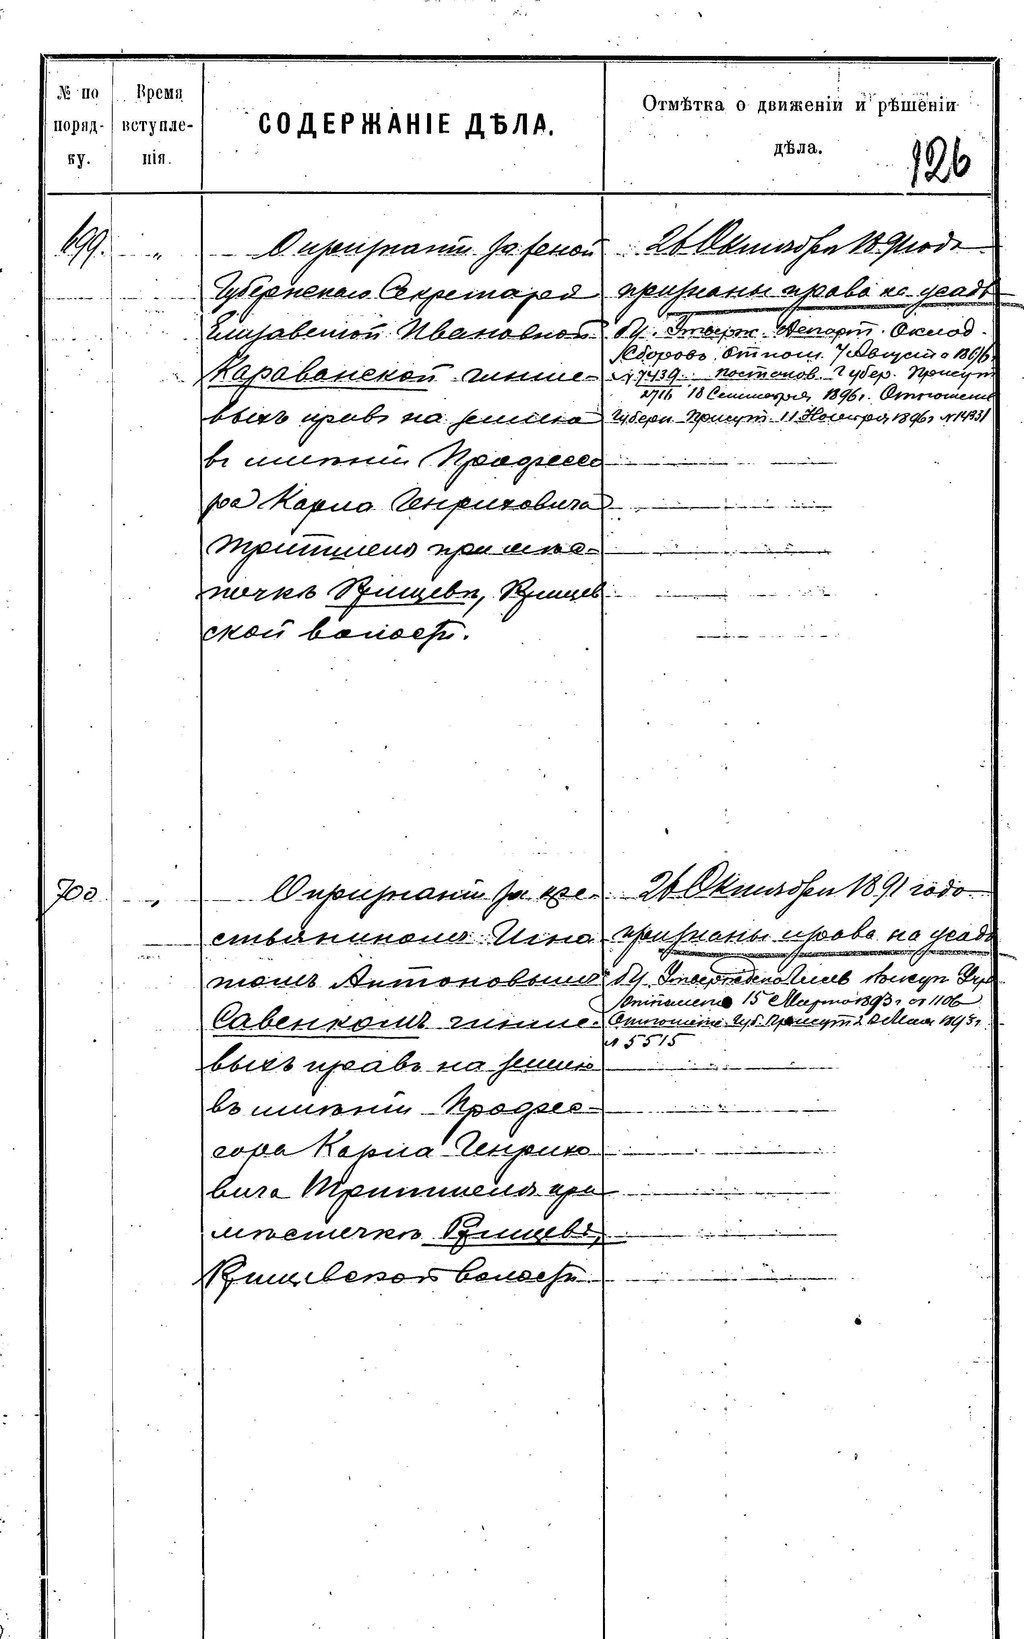 № по поряд- ку.
Время вступле- нія.
СОДЕРЖАНІЕ ДѢЛА.
Отмѣтка о движеніи и рѣшеніи
дѣла.
126
699.
„
О признаніи за женой
Губернскаго Секретаря
Елизаветой Ивановной
Караванской чинше-
выхъ правъ на землю
въ имѣніи Профессо
ра Карла Генриховича
Тритшеля при мѣс-
течкѣ Ржищевѣ, Ржищев
ской волости.
26 Октября 1891 года
признаны права на усадь
бу. Утвержд. Департ. Оклад.
Сборовъ. Отнош. 7 Августа 1896
№ 7439 постанов. Губер. Присут
2716 18 Сентября 1896 г. Отношен
Губерн. Присут. 11 Ноября 1896 г №14331
700
„
О признаніи за кре-
стьяниномъ Игна
томъ Антоновымъ
Савенкомъ чинше-
выхъ правъ на землю
въ имѣніи Профес-
сора Карла Генрихо
вича Тритшеля при
мѣстечкѣ Ржищевѣ,
Ржищевской волости
26 Октября 1891 года
признаны права на усадь
бу. Утверждено
отношен 15 Марта 1893 г № 1106
Отношеніе Губ. Присут. 28 Мая 1893 г.
№ 5515